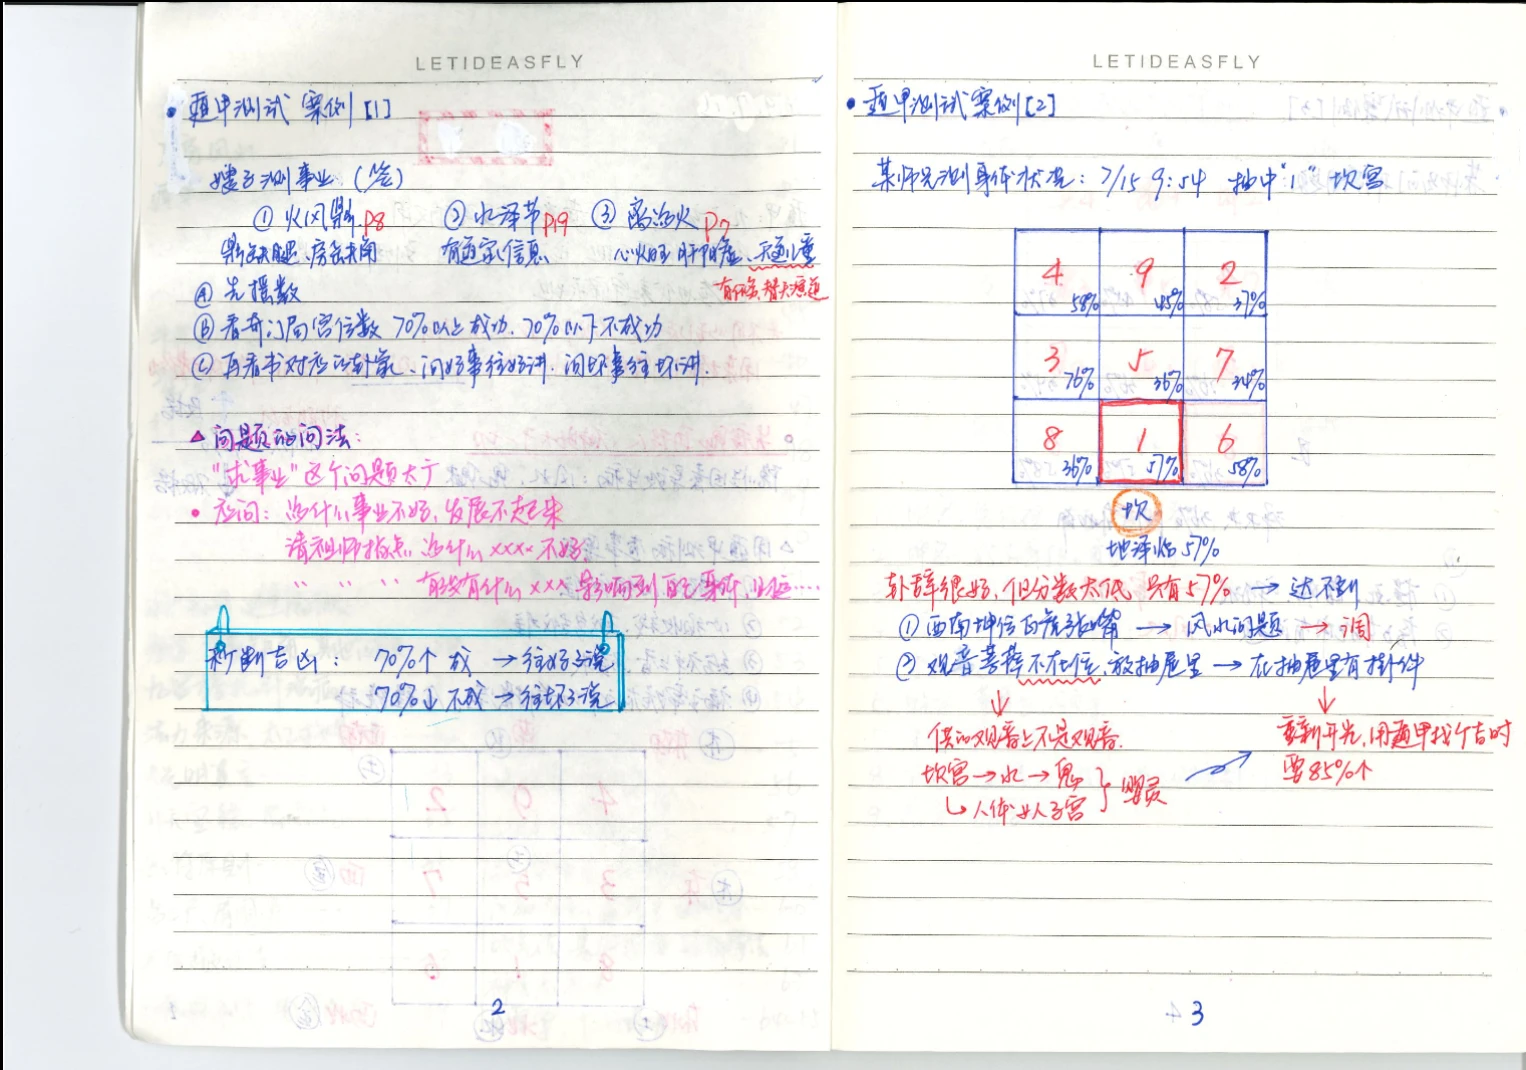 LETIDEASFLY
• 遁甲测试 案例[1]
嫂子测事业 (签)
① 火风鼎 P8 ② 水泽节 P19 ③ 离为火 P7
鼎缺腿、房缺角 有通灵信息 心火旺 肝阳虚、
Ⓐ 先摇数
Ⓑ 看奇门局宫位数 70%以上成功、70%以下不成功
Ⓒ 再看书对应的卦象、问好事往好讲、问坏事往坏讲.
▲ 问题的问法:
"求事业"这个问题太广
• 应问: 为什么事业不好,发展不起来
请祖师指点 为什么 xxxx 不好
〃 〃 〃 有没有什么 xxx 影响到自己身体、……
秒断吉凶: 70%个 成 → 往好了说
70%↓ 不成 → 往坏了说
2
LETIDEASFLY
• 遁甲测试案例[2]
某师兄测身体状况: 7/15 9:54 抽中"1" 坎宫
4 58% 9 45% 2 37%
3 76% 5 36% 7 34%
8 36% 1 57% 6 58%
坎
地泽临 57%
卦辞很好,但分数太低 只有57% → 达不到
① 西南坤位白虎张嘴 → 风水问题 → 调
② 观音菩萨不在位,放抽屉里 → 在抽屉里有掛件
↓ ↓
供的观音上不是观音. 重新开光,用遁甲找个吉时
坎宫→水→鬼 } 婴灵 要85%个
↳人体女人子宫
3